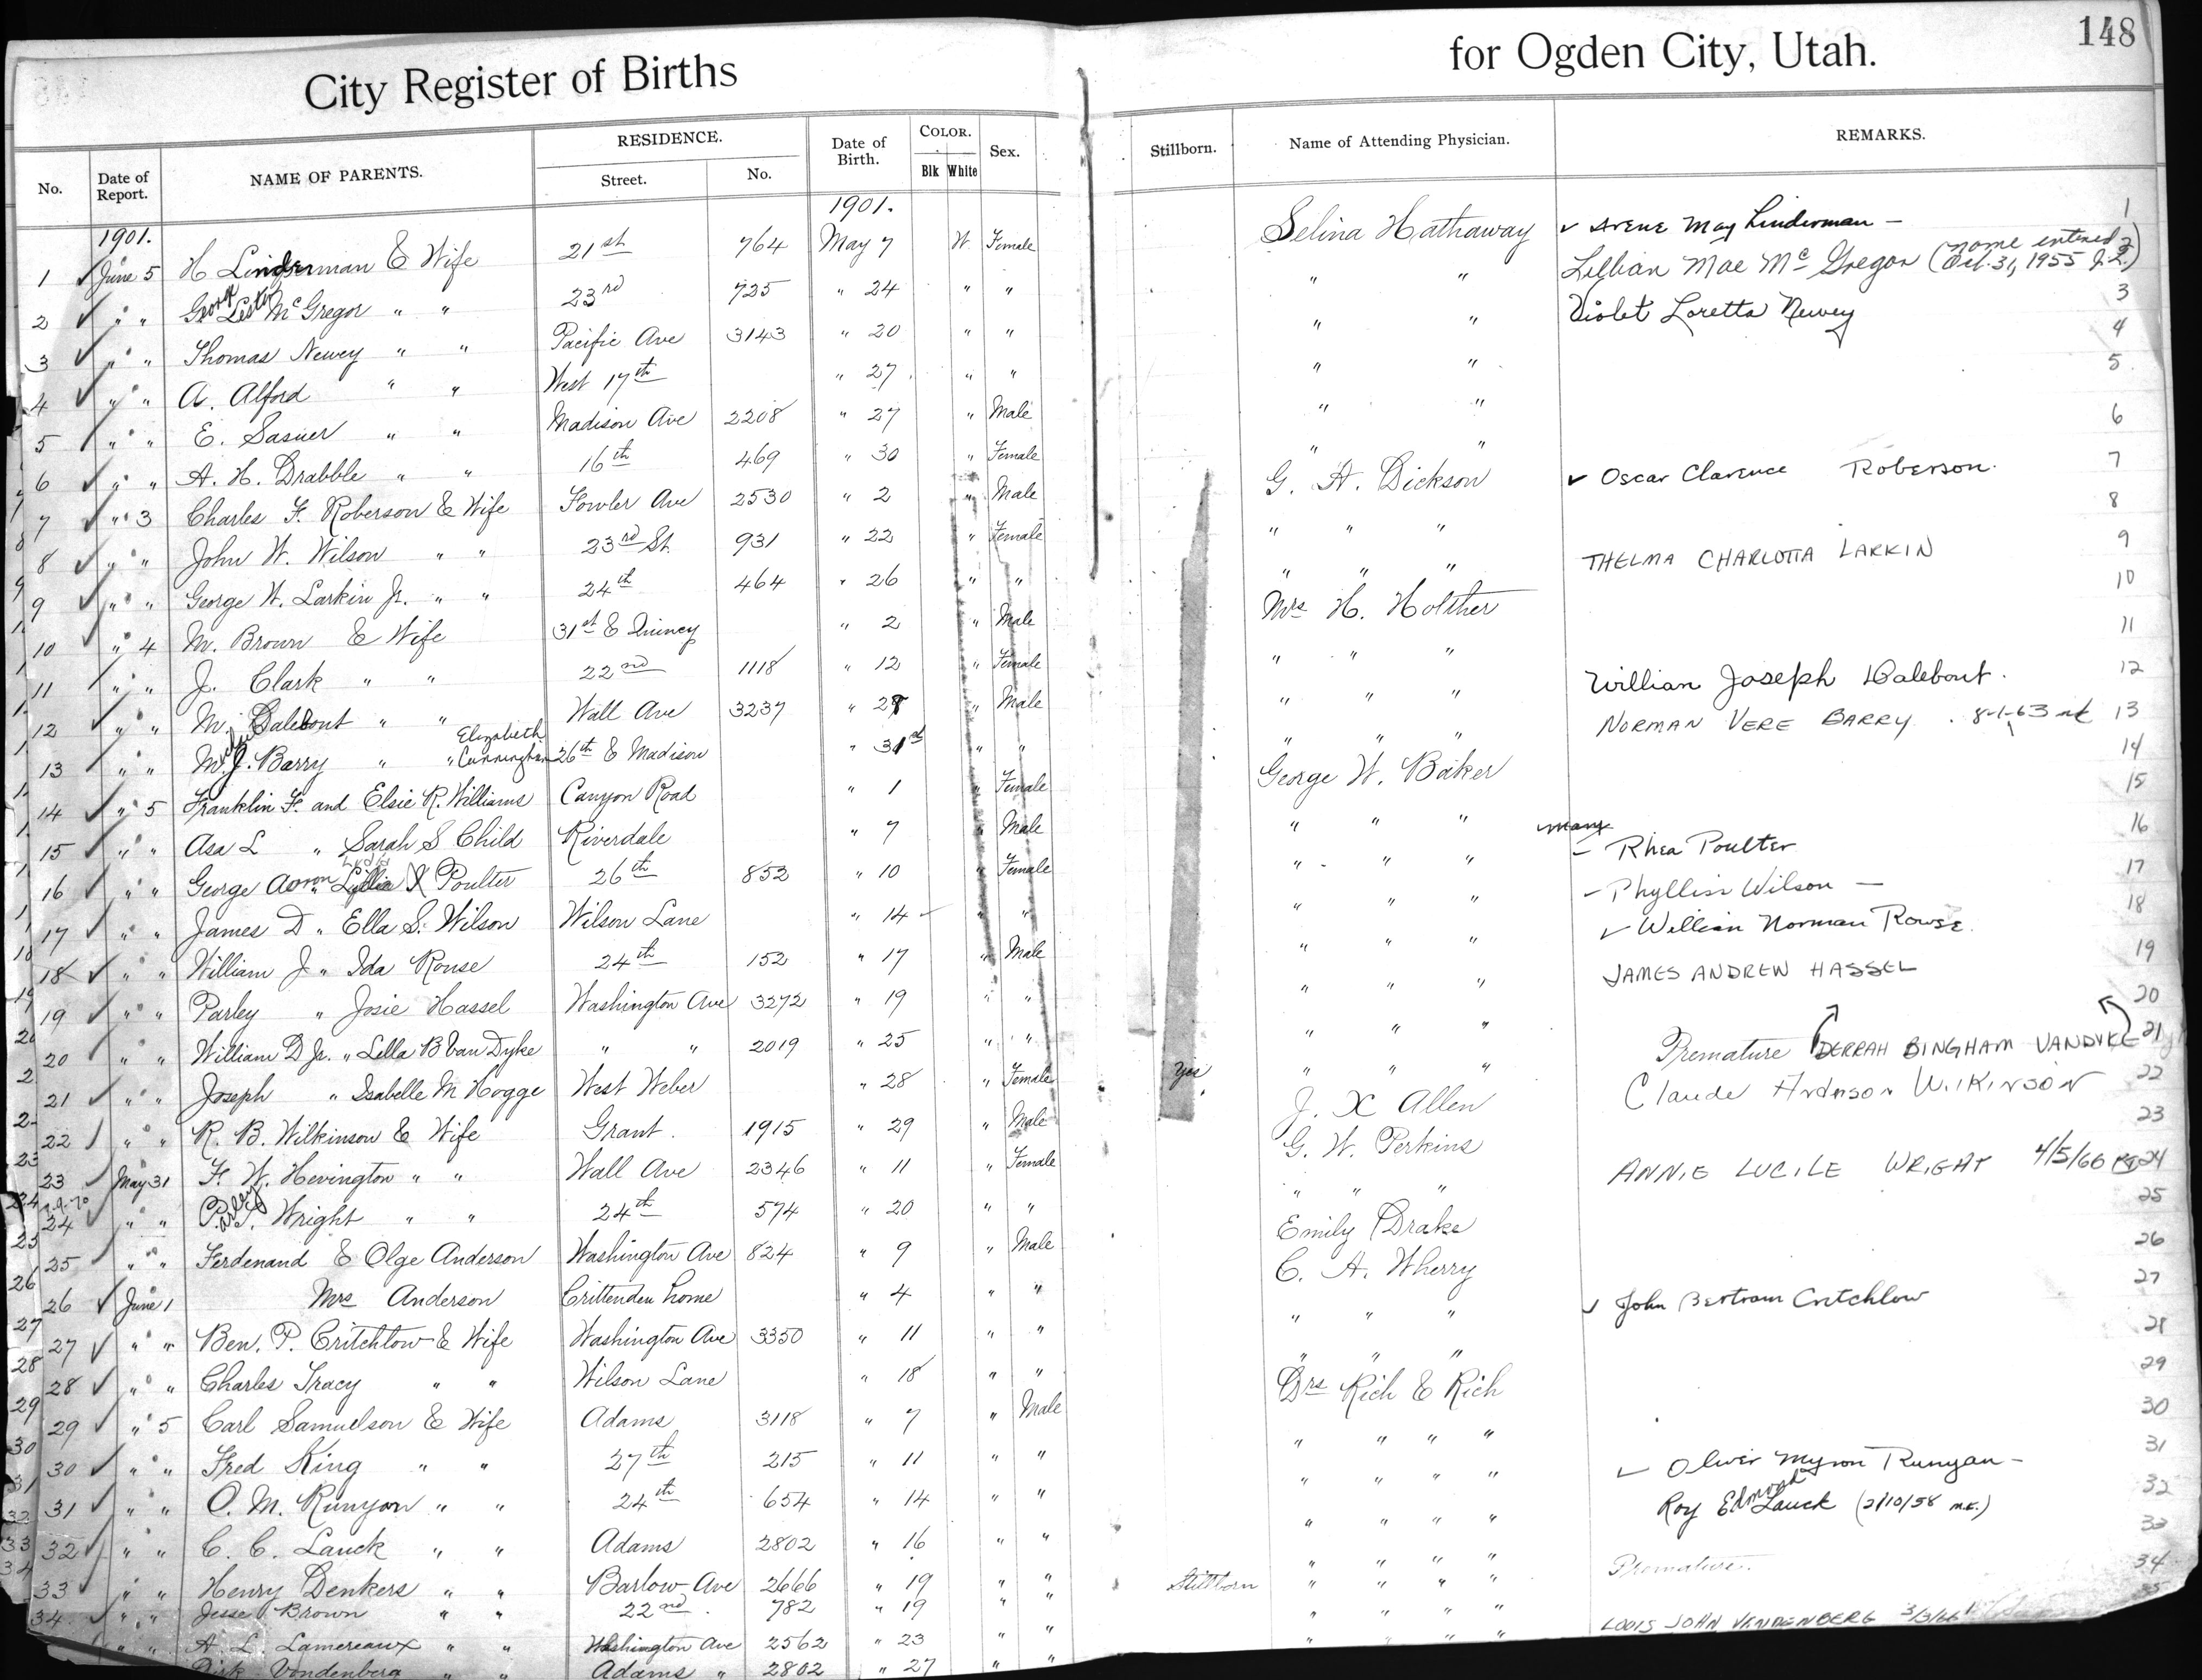 City Register of Births for Ogden City, Utah. 148
No. Date of Report. NAME OF PARENTS. RESIDENCE. Street. No. Date of Birth. COLOR. Blk White Sex. Stillborn. Name of Attending Physician. REMARKS.
1901. 1901.
1 ✓ June 5 H Linderman & Wife 21st 764 May 7 W. Female Selina Hathaway ✓ Arene May Linderman — 1
2 ✓ " " George Lester McGregor " " 23rd 725 " 24 " " " " Lillian Mae McGregor (name entered Oct. 31, 1955 J.L.) 2
3 ✓ " " Thomas Newey " " Pacific Ave 3143 " 20 " " " " Violet Loretta Newey 3
4 ✓ " " A. Alford " " West 17th " 27 " " " " 4
5 " " E. Sasner " " Madison Ave 2208 " 27 " Male " " 5
6 ✓ " " A. H. Drabble " " 16th 469 " 30 " Female " " 6
7 ✓ " 3 Charles F. Roberson & Wife Fowler Ave 2530 " 2 " Male G. A. Dickson ✓ Oscar Clarence Roberson. 7
8 ✓ " " John W. Wilson " " 23rd St. 931 " 22 " Female " " " 8
9 ✓ " " George W. Larkin Jr. " " 24th 464 " 26 " " " " " THELMA CHARLOTTA LARKIN 9
10 " 4 M. Brown & Wife 31st & Quincy " 2 " Male Mrs H. Holther 10
11 " " J. Clark " " 22nd 1118 " 12 " Female " " " 11
12 ✓ " " M. Dalebout " " Wall Ave 3237 " 28 " Male " " " William Joseph Dalebout. 12
13 " " J. Barry " " Elizabeth Cunningham 26th & Madison " 31st " " " " " NORMAN VERE BARRY. 8-1-63 13
14 ✓ " 5 Franklin F. and Elsie R. Williams Canyon Road " 1 " Female George W. Baker 14
15 ✓ " " Asa L " Sarah S Child Riverdale " 7 " Male " " " 15
16 ✓ " " George Aaron " Lydia Poulter 26th 852 " 10 " Female " " " Mary Rhea Poulter 16
17 ✓ " " James D " Ella S. Wilson Wilson Lane " 14 " " " " " – Phyllis Wilson — 17
18 ✓ " " William J " Ida Rouse 24th 152 " 17 " Male " " " ✓ William Norman Rowse. 18
19 ✓ " " Parley " Josie Hassel Washington Ave 3272 " 19 " " " " " JAMES ANDREW HASSEL 19
20 ✓ " " William D Jr. " Lella B Van Dyke " " 2019 " 25 " " " " " DERRAH BINGHAM VANDYKE 20
21 ✓ " " Joseph " Isabelle M Hogge West Weber " 28 " Female Yes " " " Premature 21
22 " " R. B. Wilkinson & Wife Grant 1915 " 29 " Male J. X Allen Claude Anderson WILKINSON 22
23 May 31 F. W. Hevington " " Wall Ave 2346 " 11 " Female G. W. Perkins 23
24 ✓ " " Parley Wright " " 24th 574 " 20 " " " " " ANNIE LUCILE WRIGHT 4/5/66 24
25 " " Ferdenand & Olge Anderson Washington Ave 824 " 9 " Male Emily Drake 25
26 ✓ June 1 Mrs Anderson Crittenden home " 4 " " C. A. Wherry 26
27 ✓ " " Ben. P. Critchlow & Wife Washington Ave 3350 " 11 " " " " " ✓ John Bertram Critchlow 27
28 ✓ " " Charles Tracy " " Wilson Lane " 18 " " " " " 28
29 ✓ " 5 Carl Samuelson & Wife Adams 3118 " 7 " Male Drs Rich & Rich 29
30 ✓ " " Fred King " " 27th 215 " 11 " " " " " " 30
31 ✓ " " O. M. Runyon " " 24th 654 " 14 " " " " " " ✓ Oliver Myron Runyan – 31
32 ✓ " " C. C. Lauck " " Adams 2802 " 16 " " " " " " Roy Edmond Lauck (2/10/58 m.k.) 32
33 ✓ " " Henry Denkers " " Barlow Ave 2666 " 19 " " " " " " 33
34 ✓ " " Jesse Brown " " 22nd 782 " 19 " " Stillborn " " " " Premature. 34
" " A. L. Lamereaux " " Washington Ave 2562 " 23 " " " " " " 35
Dirk Vondenberg " " Adams " 2802 " 27 " " " " " " LOUIS JOHN VANDENBERG 3/3/66